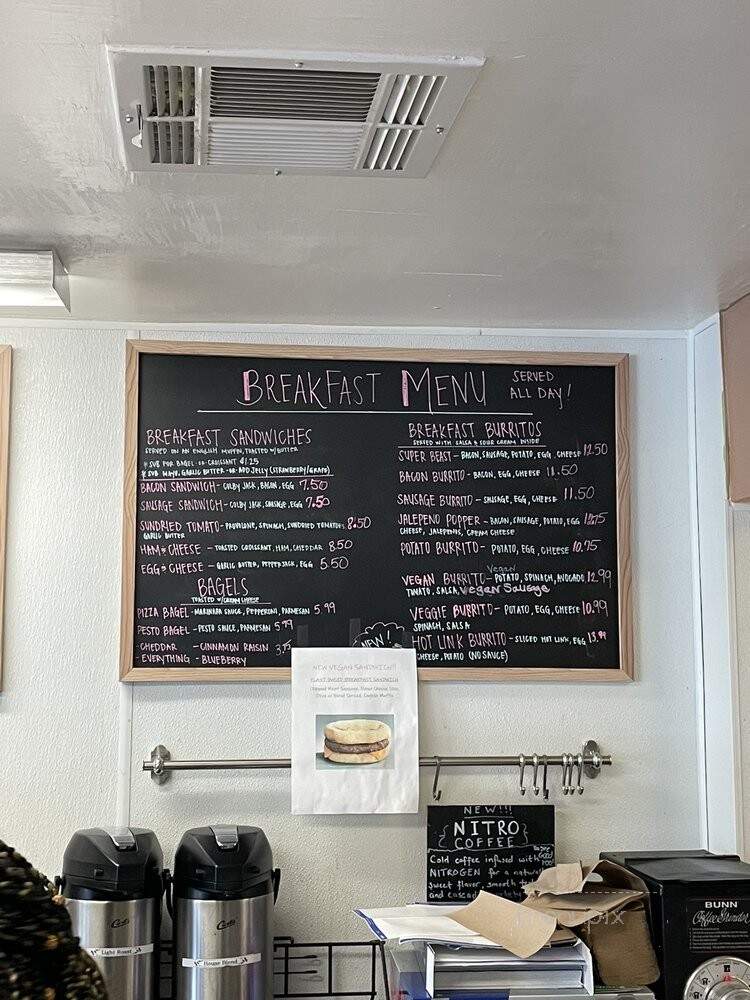 BREAKFAST MENU
SERVED
ALL DAY!
BREAKFAST SANDWICHES
SERVED ON AN ENGLISH MUFFIN, TOASTED W/BUTTER
* SUB FOR BAGEL -OR- CROISSANT $1.25
* SUB MAYO, GARLIC BUTTER -OR- ADD JELLY (STRAWBERRY/GRAPE)
BACON SANDWICH - COLBY JACK, BACON, EGG 7.50
SAUSAGE SANDWICH - COLBY JACK, SAUSAGE, EGG 7.50
SUNDRIED TOMATO - PROVOLONE, SPINACH, SUNDRIED TOMATOES 8.50
GARLIC BUTTER
HAM & CHEESE - TOASTED CROISSANT, HAM, CHEDDAR 8.50
EGG & CHEESE - GARLIC BUTTER, PEPPERJACK, EGG 5.50
BAGELS
TOASTED W/CREAM CHEESE
PIZZA BAGEL - MARINARA SAUCE, PEPPERONI, PARMESAN 5.99
PESTO BAGEL - PESTO SAUCE, PARMESAN 5.99
- CHEDDAR - CINNAMON RAISIN
- EVERYTHING - BLUEBERRY
BREAKFAST BURRITOS
SERVED WITH SALSA & SOUR CREAM INSIDE
SUPER BEAST - BACON, SAUSAGE, POTATO, EGG, CHEESE 12.50
BACON BURRITO - BACON, EGG, CHEESE 11.50
SAUSAGE BURRITO - SAUSAGE, EGG, CHEESE 11.50
JALEPENO POPPER - BACON, SAUSAGE, POTATO, EGG 12.75
CHEESE, JALEPENOS, CREAM CHEESE
POTATO BURRITO - POTATO, EGG, CHEESE 10.75
Vegan
VEGAN BURRITO - POTATO, SPINACH, AVOCADO 12.99
TOMATO, SALSA, Vegan Sausage
VEGGIE BURRITO - POTATO, EGG, CHEESE 10.99
SPINACH, SALSA
HOT LINK BURRITO - SLICED HOT LINK, EGG 13.99
CHEESE, POTATO (NO SAUCE)
NEW!
NEW VEGAN SANDWICH!!!
PLANT BASED BREAKFAST SANDWICH
Beyond Meat Sausage, Vegan Cheese Slice,
English Muffin
NEW!!!
NITRO
COFFEE
Cold coffee infused with
NITROGEN for a natural
sweet flavor, smooth
and
Curtis
Light Roast
Curtis
House Blend
BUNN
Coffee Grinder